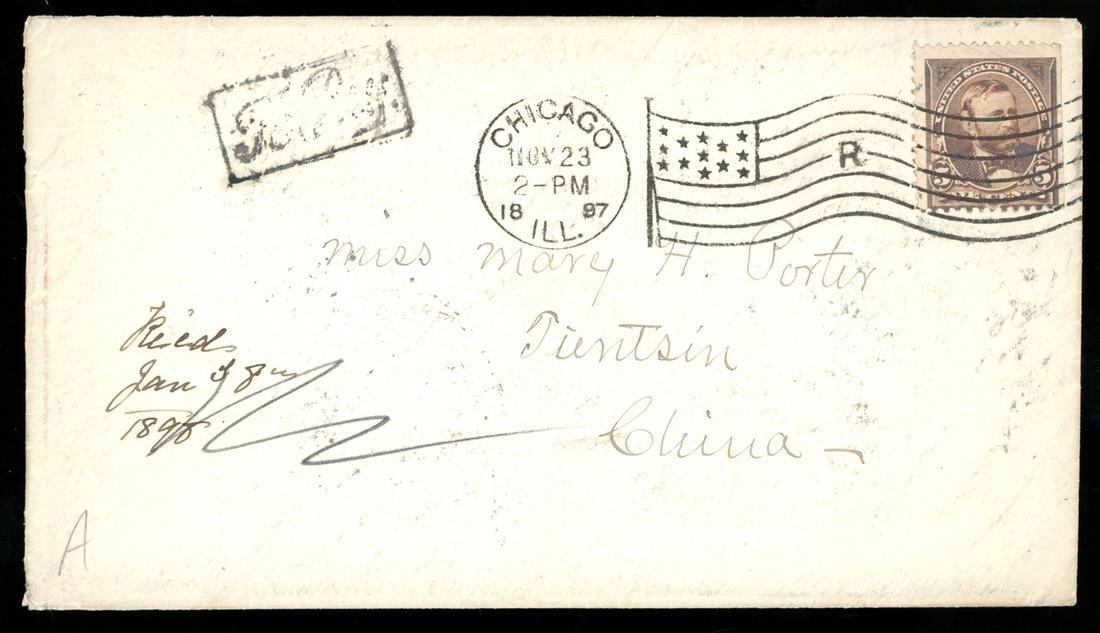 CHICAGO
NOV 23
2-PM
18 97
ILL.
R
UNITED STATES POSTAGE
5 5
Miss Mary H. Porter
Tientsin
China -
Jan 8
1898
A